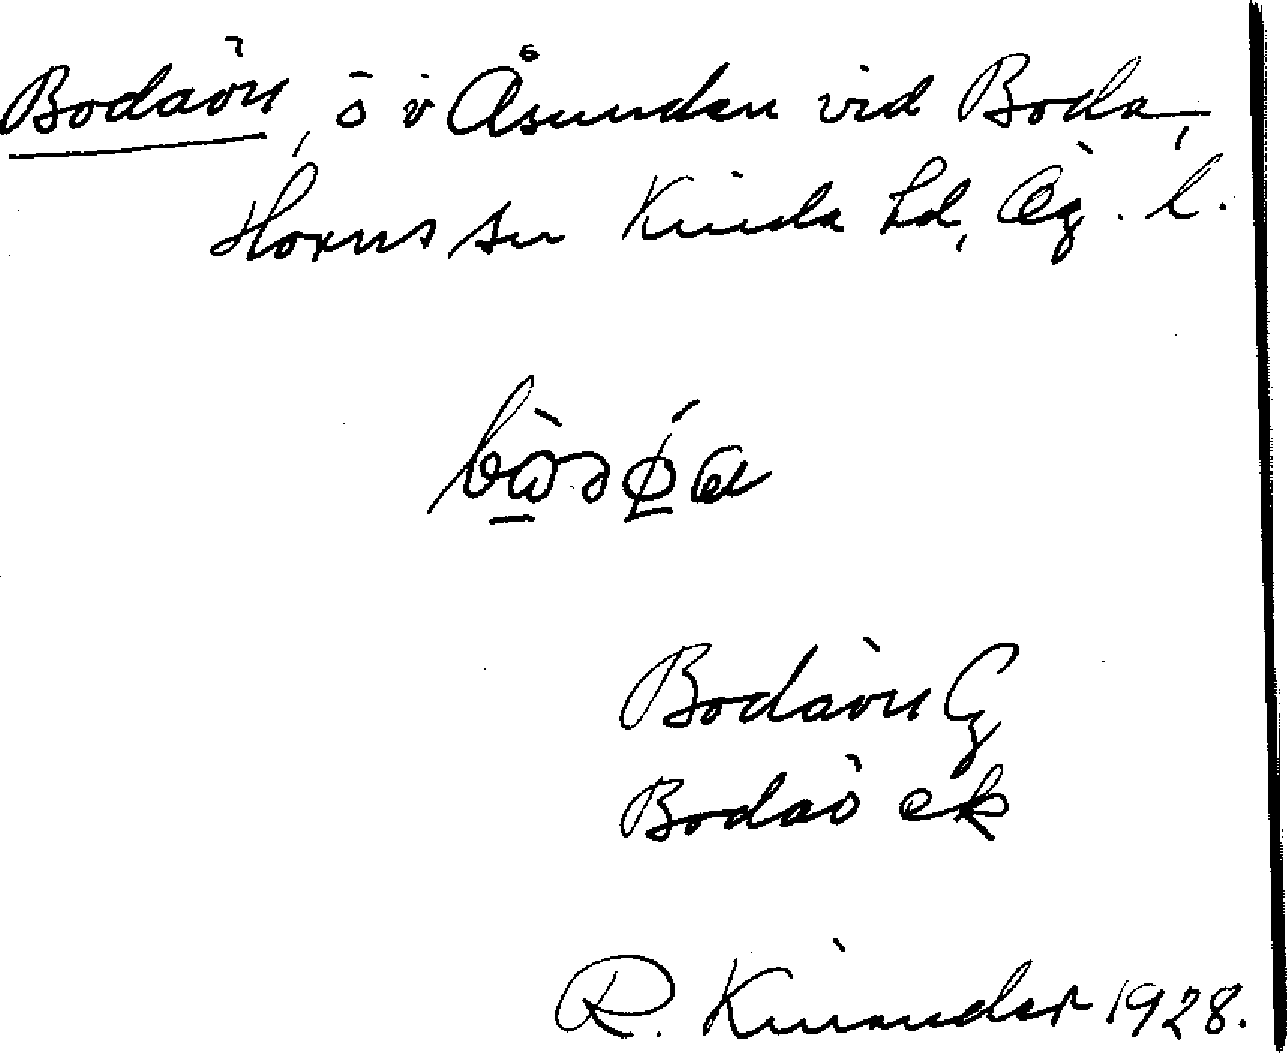 Bodaön, ö i Åsunden vid Boda,
Horns sn Kinda hd, Ög. l.
Bodaön G
Bodaö ek
R. Kinander 1928.